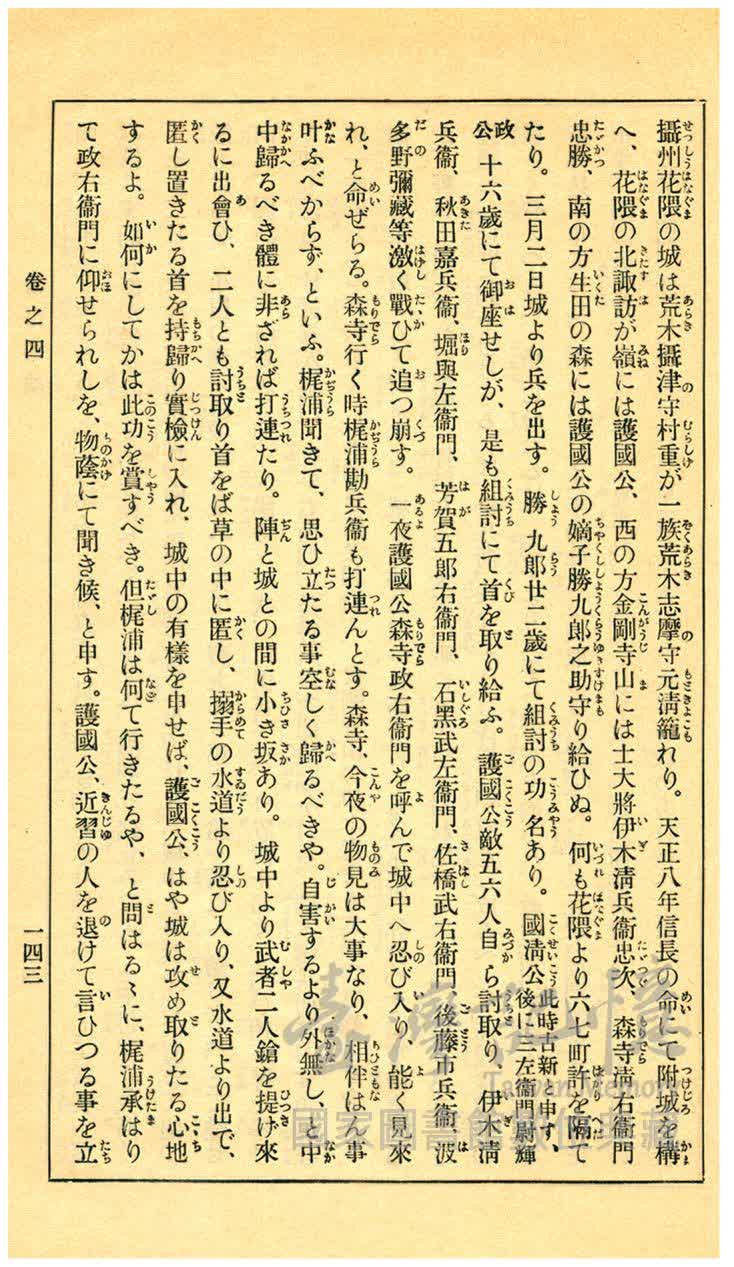 攝州花隈の城は荒木攝津守村重が一族荒木志摩守元淸籠れり。天正八年信長の命にて附城を構
へ、花隈の北諏訪が嶺には護國公、西の方金剛寺山には士大將伊木淸兵衞忠次、森寺淸右衞門
忠勝、南の方生田の森には護國公の嫡子勝九郎之助守り給ひぬ。何も花隈より六七町許を隔て
たり。三月二日城より兵を出す。勝九郎廿二歲にて組討の功名あり。國淸公此時古新と申す、後に三左衞門尉輝
政公十六歲にて御座せしが、是も組討にて首を取り給ふ。護國公敵五六人自ら討取り、伊木淸
兵衞、秋田嘉兵衞、堀與左衞門、芳賀五郎右衞門、石黑武左衞門、佐橋武右衞門、後藤市兵衞、波
多野彌藏等激く戰ひて追つ崩す。一夜護國公森寺政右衞門を呼んで城中へ忍び入り、能く見來
れ、と命ぜらる。森寺行く時梶浦勘兵衞も打連んとす。森寺、今夜の物見は大事なり、相伴はん事
叶ふべからず、といふ。梶浦聞きて、思ひ立たる事空しく歸るべきや。自害するより外無し、と中
中歸るべき體に非ざれば打連たり。陣と城との間に小き坂あり。城中より武者二人鎗を提げ來
るに出會ひ、二人とも討取り首をば草の中に匿し、搦手の水道より忍び入り、又水道より出で、
匿し置きたる首を持歸り實檢に入れ、城中の有樣を申せば、護國公、はや城は攻め取りたる心地
するよ。如何にしてかは此功を賞すべき。但梶浦は何て行きたるや、と問はるゝに、梶浦承はり
て政右衞門に仰せられしを、物蔭にて聞き候、と申す。護國公、近習の人を退けて言ひつる事を立
卷之四
一四三
臺灣
國家圖書館
Taiwan Memory